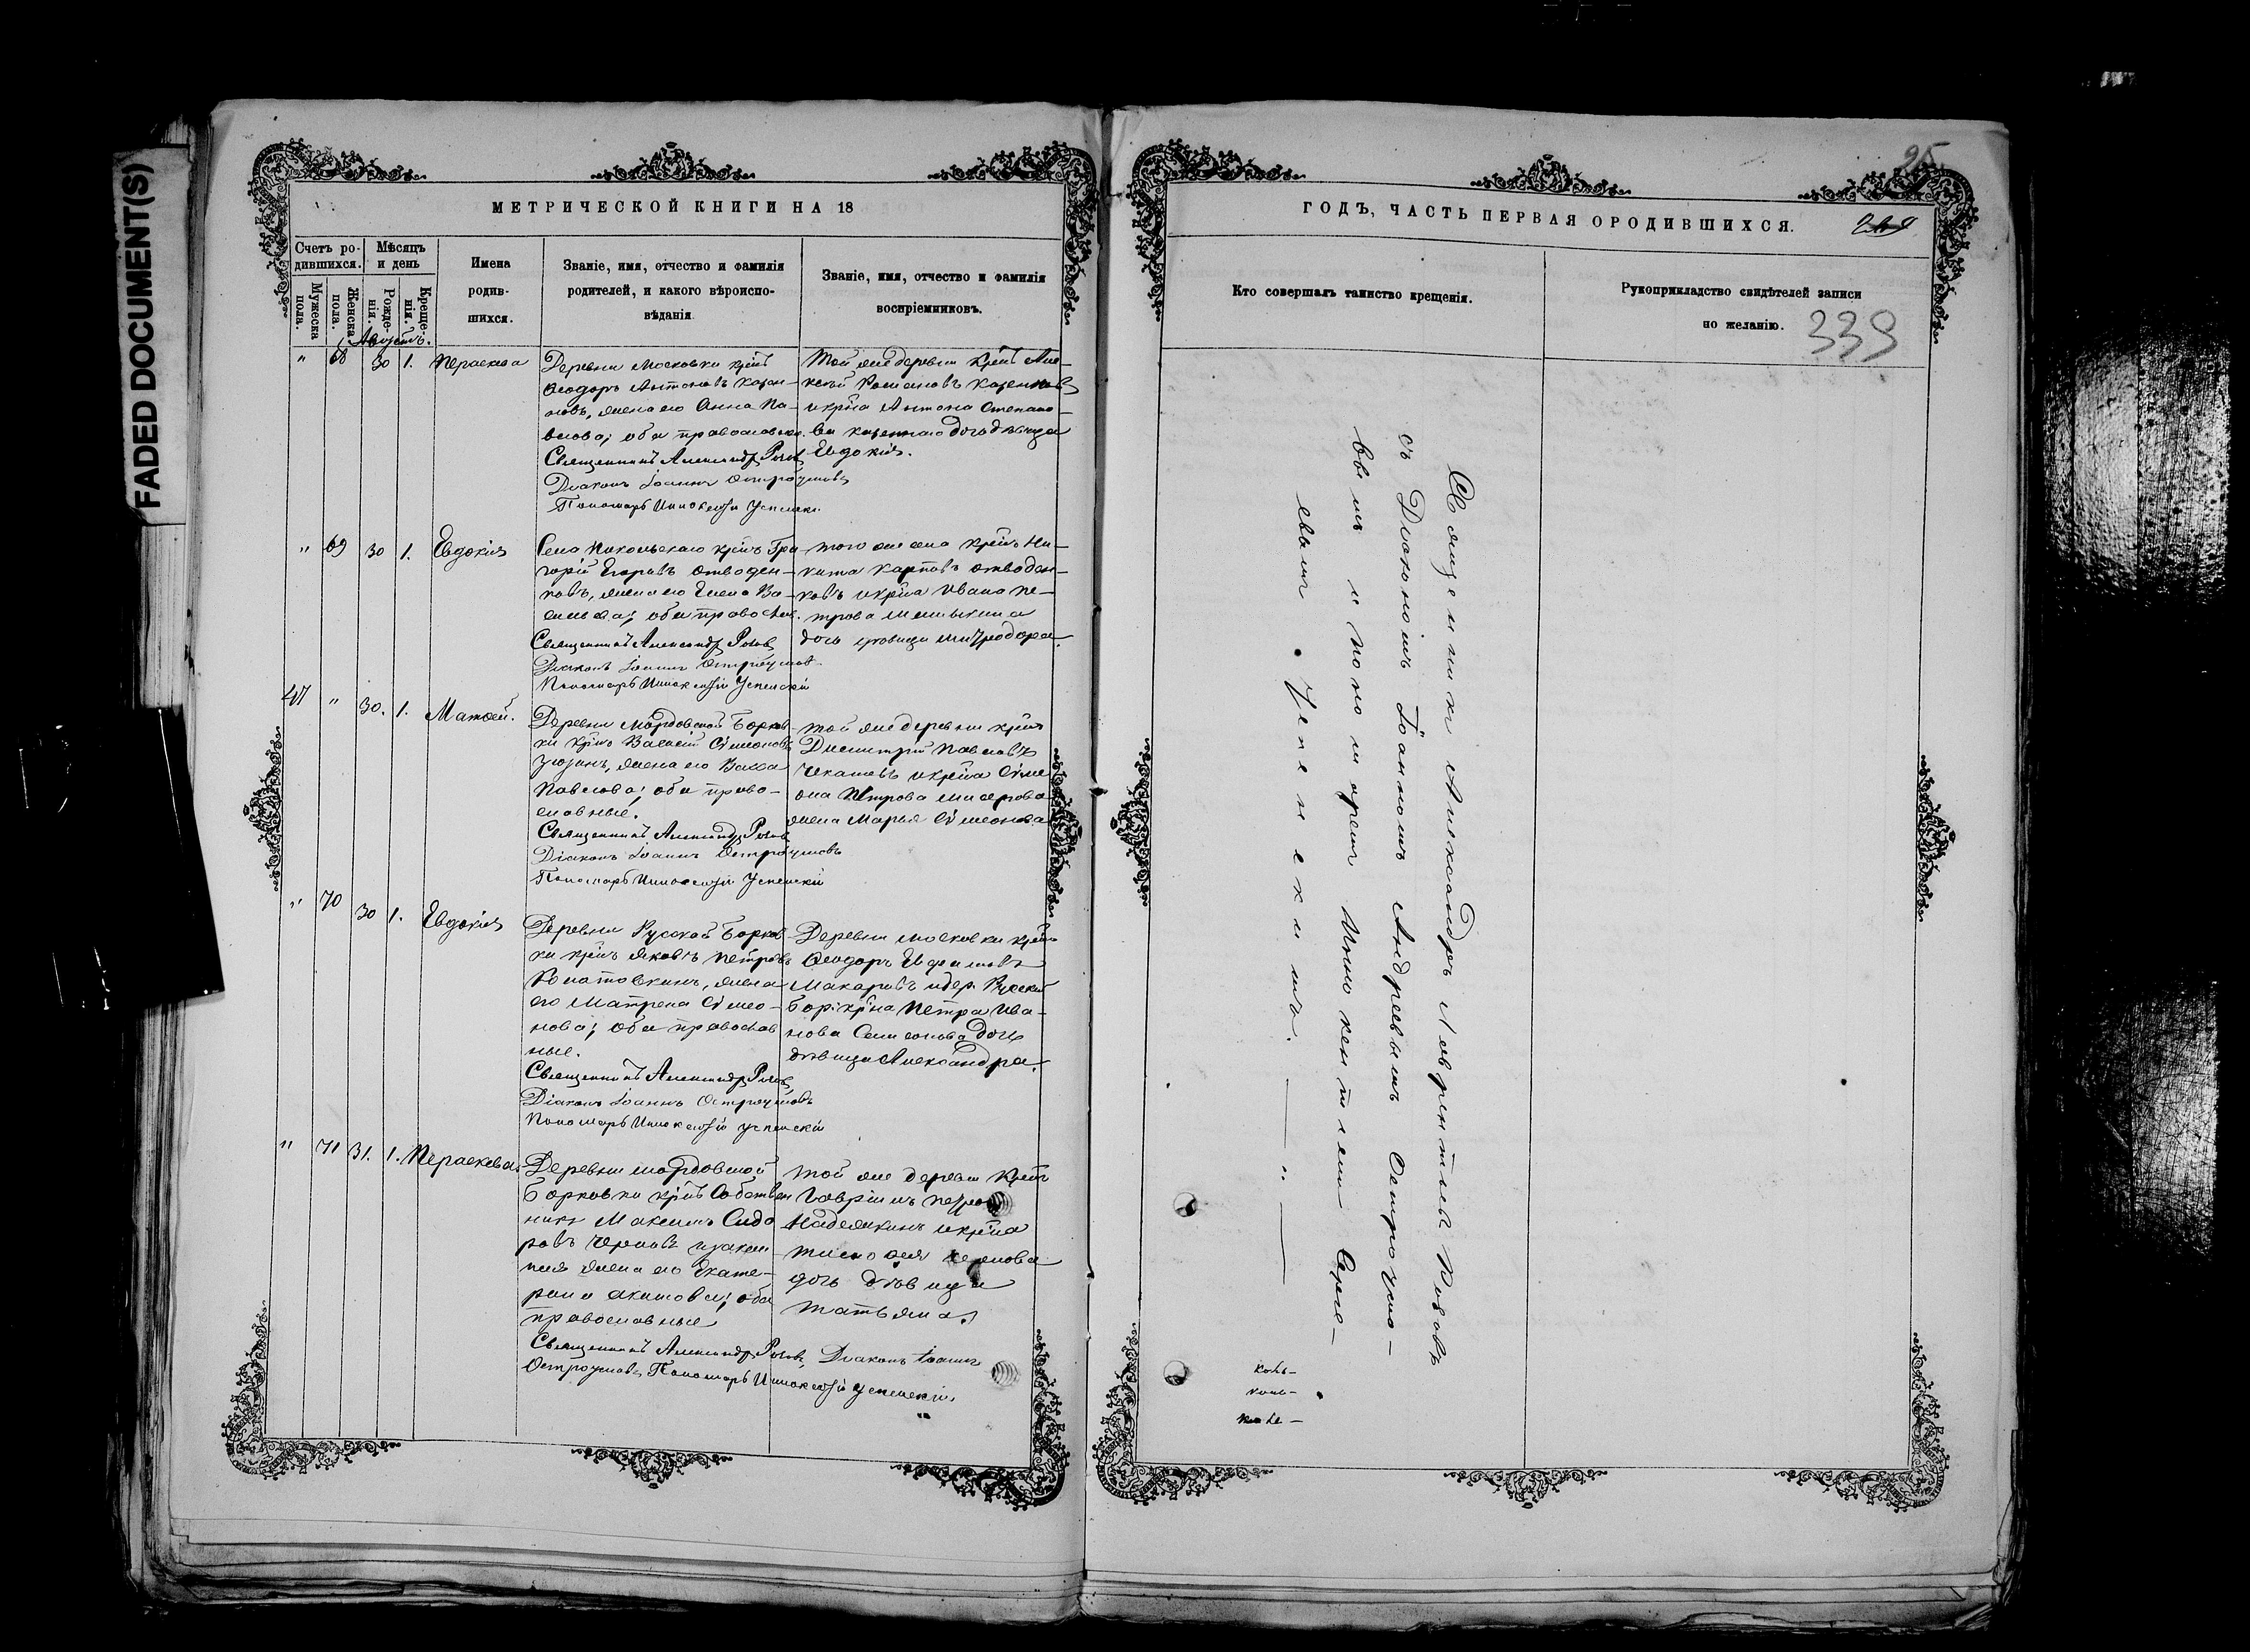 FADED DOCUMENT(S)
МЕТРИЧЕСКОЙ КНИГИ НА 18
Счетъ ро-
дившихся.
Мѣсяцъ
и день
Мужеска
пола.
Женска
пола.
Рожде-
нія.
Креще-
нія.
Имена
родив-
шихся.
Званіе, имя, отчество и фамилія
родителей, и какого вѣроиспо-
вѣданія.
Званіе, имя, отчество и фамилія
воспріемниковъ.
Августъ.
" 68 30 1. Параскева
Деревни Московки кр҃нъ
Ѳеодоръ Антоновъ
новъ, жена его Анна Па-
влова; оба православные.
Священникъ Александръ Розовъ
Діаконъ Іоаннъ Остроумовъ
Пономарь Иннокентій Успенскій
Той же деревни кр҃нъ Але-
ксѣй Романовъ
и кр҃на Антона Степано-
ва дочь дѣвица
Евдокія.
" 69 30 1. Евдокія
Села Никольскаго кр҃нъ Гри-
горій Егоровъ Отводен-
ковъ, жена его Елена Ва-
сильева; оба правосл.
Священникъ Александръ Розовъ
Діаконъ Іоаннъ Остроумовъ
Пономарь Иннокентій Успенскій
Того же села кр҃нъ Ни-
кита Карповъ Отводен-
ковъ и кр҃на Ивана Пе-
трова
дочь дѣвица Митродора.
47 " 30. 1. Матѳей.
Деревни Мордовской Борков-
ки кр҃нъ Василій Сѵмеоновъ
Зюзинъ, жена его Васса
Павлова; оба право-
славные.
Священникъ Александръ Розовъ
Діаконъ Іоаннъ Остроумовъ
Пономарь Иннокентій Успенскій
Той же деревни кр҃нъ
Димитрій Павловъ
Чекашевъ и кр҃на Сѵме-
она Петрова
жена Марья Сѵмеонова
" 70 30 1. Евдокія
Деревни Русской Борков-
ки кр҃нъ Яковъ Петровъ
жена
его Матрена Сѵмео-
нова; оба православ-
ные.
Священникъ Александръ Розовъ
Діаконъ Іоаннъ Остроумовъ
Пономарь Иннокентій Успенскій
Деревни Московки кр҃нъ
Ѳеодоръ Ефимовъ
Макаровъ и дер. Русской
Бор. кр҃на Петра Ива-
нова Семенова дочь
дѣвица Александра.
" 71 31. 1. Параскева
Деревни Мордовской
Борковки кр҃нъ Собствен-
никъ Максимъ Сидо-
ровъ Черновъ и законн-
ная жена его Екате-
рина Акимова; оба
православные
Священникъ Александръ Розовъ, Діаконъ Іоаннъ
Остроумовъ, Пономарь Иннокентій Успенскій
Той же деревни кр҃нъ
Гавріилъ
Надежкинъ и кр҃на
Тимоѳея Чернова
дочь дѣвица
Татьяна.
25
ГОДЪ, ЧАСТЬ ПЕРВАЯ О РОДИВШИХСЯ.
Кто совершалъ таинство крещенія.
Рукоприкладство свидѣтелей записи
по желанію.
339
Священникъ Александръ Лаврентіевъ Розовъ
съ Діакономъ Іоанномъ Андреевымъ Остроумо-
вымъ и пономаремъ Иннокентіемъ Серге-
евымъ Успенскимъ.